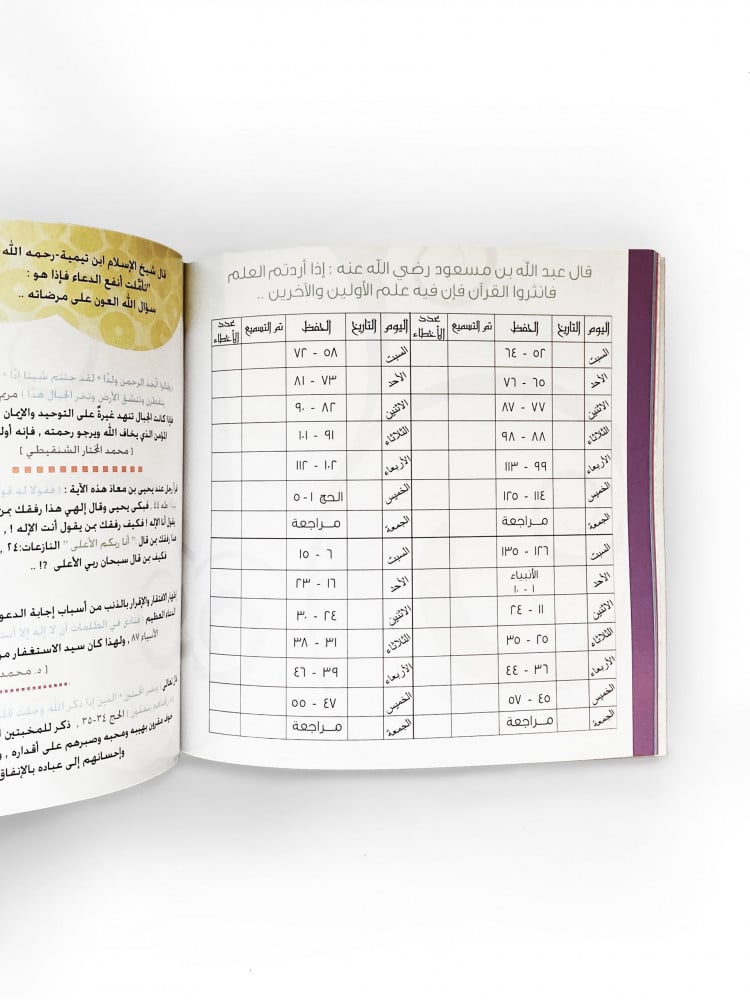 قال عبد الله بن مسعود رضي الله عنه : إذا أردتم العلم
فانثروا القرآن فإن فيه علم الأولين والآخرين ..
اليوم التاريخ الحفظ تم التسميع عدد الأخطاء اليوم التاريخ الحفظ تم التسميع عدد الأخطاء
السبت ٥٢ - ٦٤ السبت ٥٨ - ٧٢
الأحد ٦٥ - ٧٦ الأحد ٧٣ - ٨١
الاثنين ٧٧ - ٨٧ الاثنين ٨٢ - ٩٠
الثلاثاء ٨٨ - ٩٨ الثلاثاء ٩١ - ١٠١
الأربعاء ٩٩ - ١١٣ الأربعاء ١٠٢ - ١١٢
الخميس ١١٤ - ١٢٥ الخميس الحج ١ - ٥
الجمعة مـــراجعة الجمعة مـــراجعة
السبت ١٢٦ - ١٣٥ السبت ٦ - ١٥
الأحد الأنبياء ١ - ١٠ الأحد ١٦ - ٢٣
الاثنين ١١ - ٢٤ الاثنين ٢٤ - ٣٠
الثلاثاء ٢٥ - ٣٥ الثلاثاء ٣١ - ٣٨
الأربعاء ٣٦ - ٤٤ الأربعاء ٣٩ - ٤٦
الخميس ٤٥ - ٥٧ الخميس ٤٧ - ٥٥
الجمعة مـــراجعة الجمعة مـــراجعة
قال شيخ الإسلام ابن تيمية-رحمه الله
"تأملت أنفع الدعاء فإذا هو :
سؤال الله العون على مرضاته ..
اتخذ الرحمن ولدًا * لقد جئتم شيئا إدًا
يتفطرن وتنشق الأرض وتخر الجبال هدًا ) مريم
فإذا كانت الجبال تنهد غيرةً على التوحيد والإيمان
المؤمن الذي يخاف الله ويرجو رحمته , فإنه أول
[ محمد المختار الشنقيطي ]
رجل عند يحيى بن معاذ هذه الآية : ( فقولا له قو
طه ٤٤. فبكى يحيى وقال إلهي هذا رفقك بمن
يقول أنا الإله ! فكيف رفقك بمن يقول أنت الإله ! ,
رفقك بمن قال " أنا ربكم الأعلى " النازعات:٢٤ ,
فكيف بمن قال سبحان ربي الأعلى ?! ..
الافتقار والإقرار بالذنب من أسباب إجابة الدعو
العظيم ( فنادى في الظلمات أن لا إله إلا أنت
الأنبياء ٨٧ , ولهذا كان سيد الاستغفار من
( د. محمد
وبشر المخبتين * الذين إذا ذكر الله وجلت قلو
الحج ٣٤-٣٥ . ذكر للمخبتين
مقرون بهيبه ومحبه وصبرهم على أقداره ,
وإحسانهم إلى عباده بالإنفاق